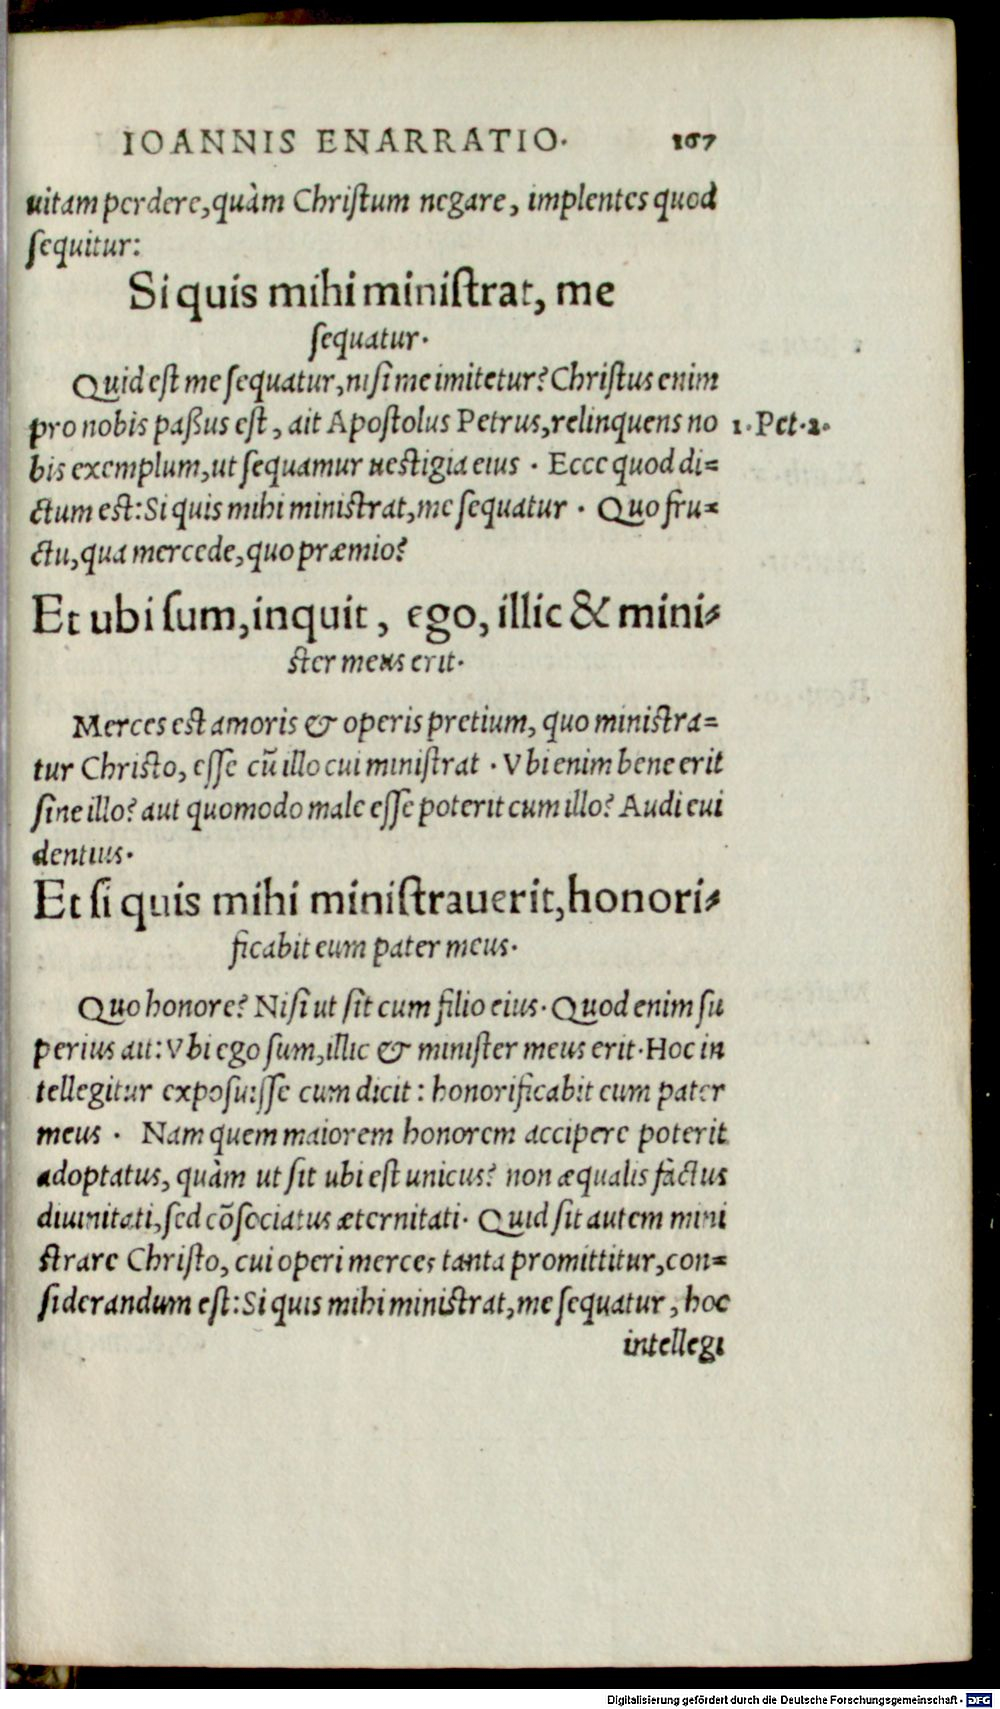 IOANNIS ENARRATIO. 167
uitam perdere, quàm Christum negare, implentes quod
sequitur:
Si quis mihi ministrat, me
sequatur.
Quid est me sequatur, nisi me imitetur? Christus enim
pro nobis passus est, ait Apostolus Petrus, relinquens no 1. Pet. 2.
bis exemplum, ut sequamur uestigia eius. Ecce quod di=
ctum est: Si quis mihi ministrat, me sequatur. Quo fru=
ctu, qua mercede, quo præmio?
Et ubi sum, inquit, ego, illic & mini=
ster meus erit.
Merces est amoris & operis pretium, quo ministra=
tur Christo, esse cū illo cui ministrat. Vbi enim bene erit
sine illo? aut quomodo male esse poterit cum illo? Audi eui
dentius.
Et si quis mihi ministrauerit, honori=
ficabit eum pater meus.
Quo honore? Nisi ut sit cum filio eius. Quod enim su
perius ait: Vbi ego sum, illic & minister meus erit. Hoc in
tellegitur exposuisse cum dicit: honorificabit eum pater
meus. Nam quem maiorem honorem accipere poterit
adoptatus, quàm ut sit ubi est unicus? non æqualis factus
diuinitati, sed cōsociatus æternitati. Quid sit autem mini
strare Christo, cui operi merces tanta promittitur, con=
siderandum est: Si quis mihi ministrat, me sequatur, hoc
intellegi
Digitalisierung gefördert durch die Deutsche Forschungsgemeinschaft - DFG